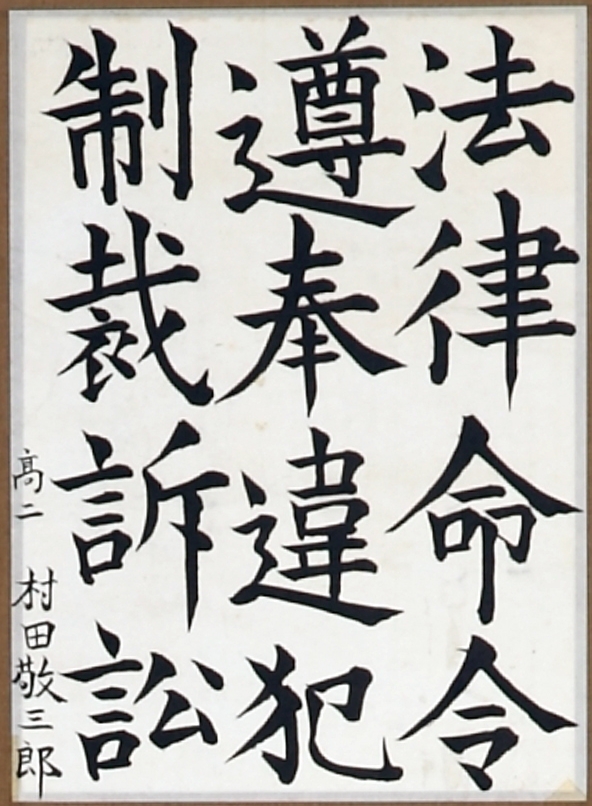 法律命令
遵奉違犯
制裁訴訟
高二 村田敬三郎